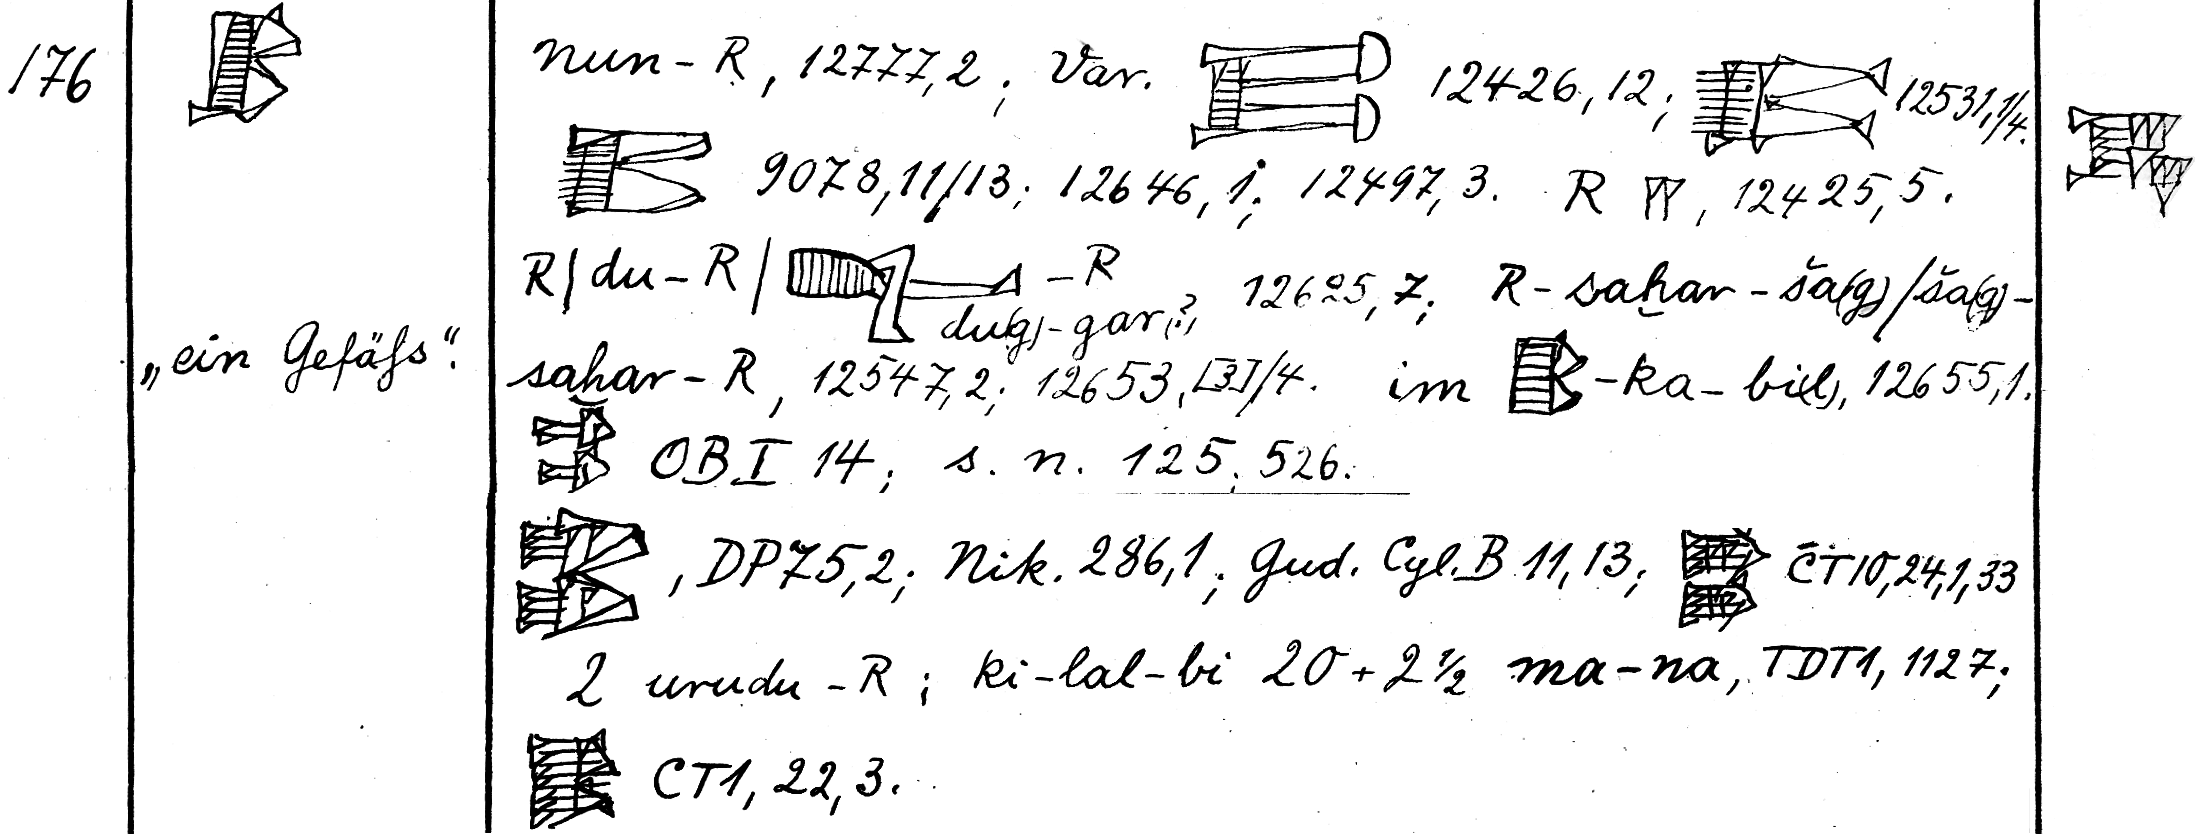 176
nun-R, 12777,2; Var. 12426,12; 12531,1/4.
9078,11/13; 12646,1; 12497,3. R 𒐀, 12425,5.
R/du-R/ -R 12625,7; R-saḫar-ša(g)/ša(g)-
du(g)-gar(?),
„ein Gefäſs“.
saḫar-R, 12547,2; 12653,[3]/4. im -ka-bi(l), 12655,1.
OBI 14; s. n. 125; 526.
, DP75,2; Nik. 286,1; Gud. Cyl. B 11,13; CT10,24,1,33
2 urudu-R; ki-lal-bi 20+2½ ma-na, TDT1, 1127;
CT1, 22, 3.